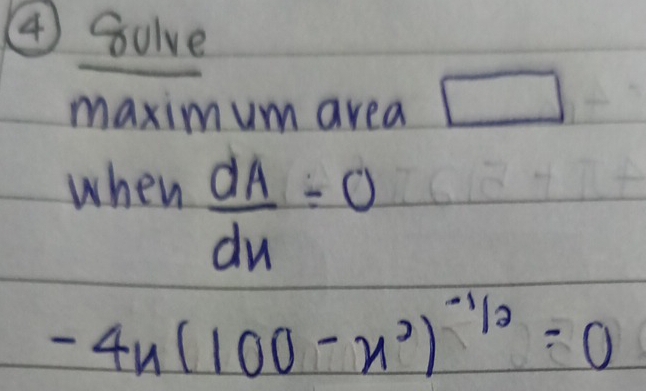 ④ Solve
maximum area ▭
when dA/dx = 0
-4x(100 - x²)^-1/2 = 0